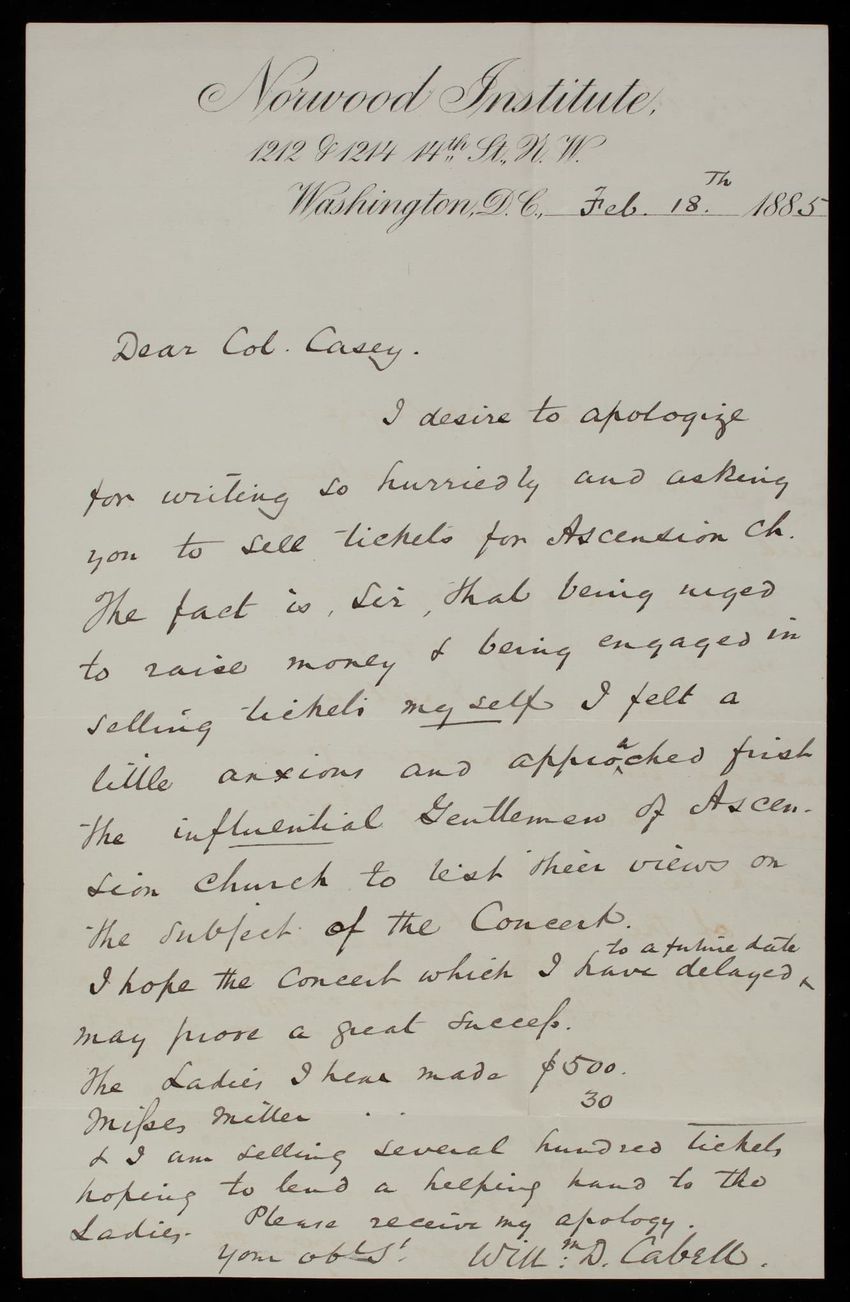 Norwood Institute,
1212 & 1214 14th St., N. W.
Washington, D. C., Feb. 18.Th 1885
Dear Col. Casey.
I desire to apologize
for writing so hurriedly and asking
you to sell tickets for Ascension Ch.
The fact is, Sir, that being urged
to raise money & being engaged in
selling tickets myself I felt a
little anxious and approached first
the influential Gentlemen of Ascen-
sion Church to test their views on
the subject of the Concert.
I hope the Concert which I have delayed to a future date
may prove a great success.
The Ladies I hear made $500.
Misses Miller . . 30
& I am selling several hundred tickets
hoping to lend a helping hand to the
Ladies. Please receive my apology.
Your obt St. Willm. D. Cabell.